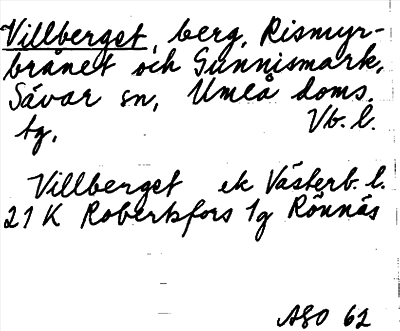 Villberget, berg, Rismyr-
brånet och Gunnismark,
Sävar sn, Umeå doms.
tg. Vb. l.
Villberget ek Västerb. l.
21 K Robertsfors 1g Rönnäs
ASO 62